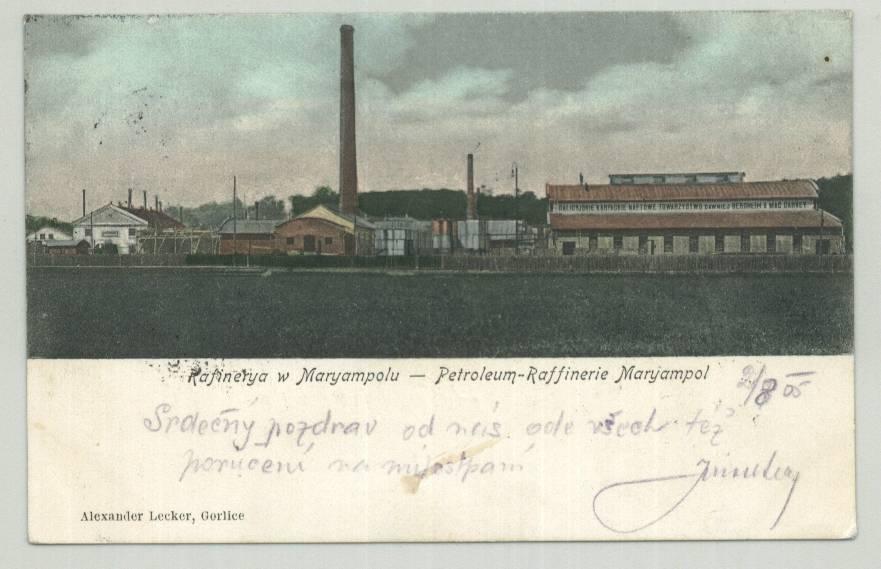 GALICYJSKIE KARPACKIE NAFTOWE TOWARZYSTWO DAWNIEJ BERGHEIM & MAC GARVEY
Rafinerya w Maryampolu — Petroleum-Raffinerie Maryampol
2/8 05
Srdečný pozdrav od nás ode všech též
poručení na milostpaní
Alexander Lecker, Gorlice